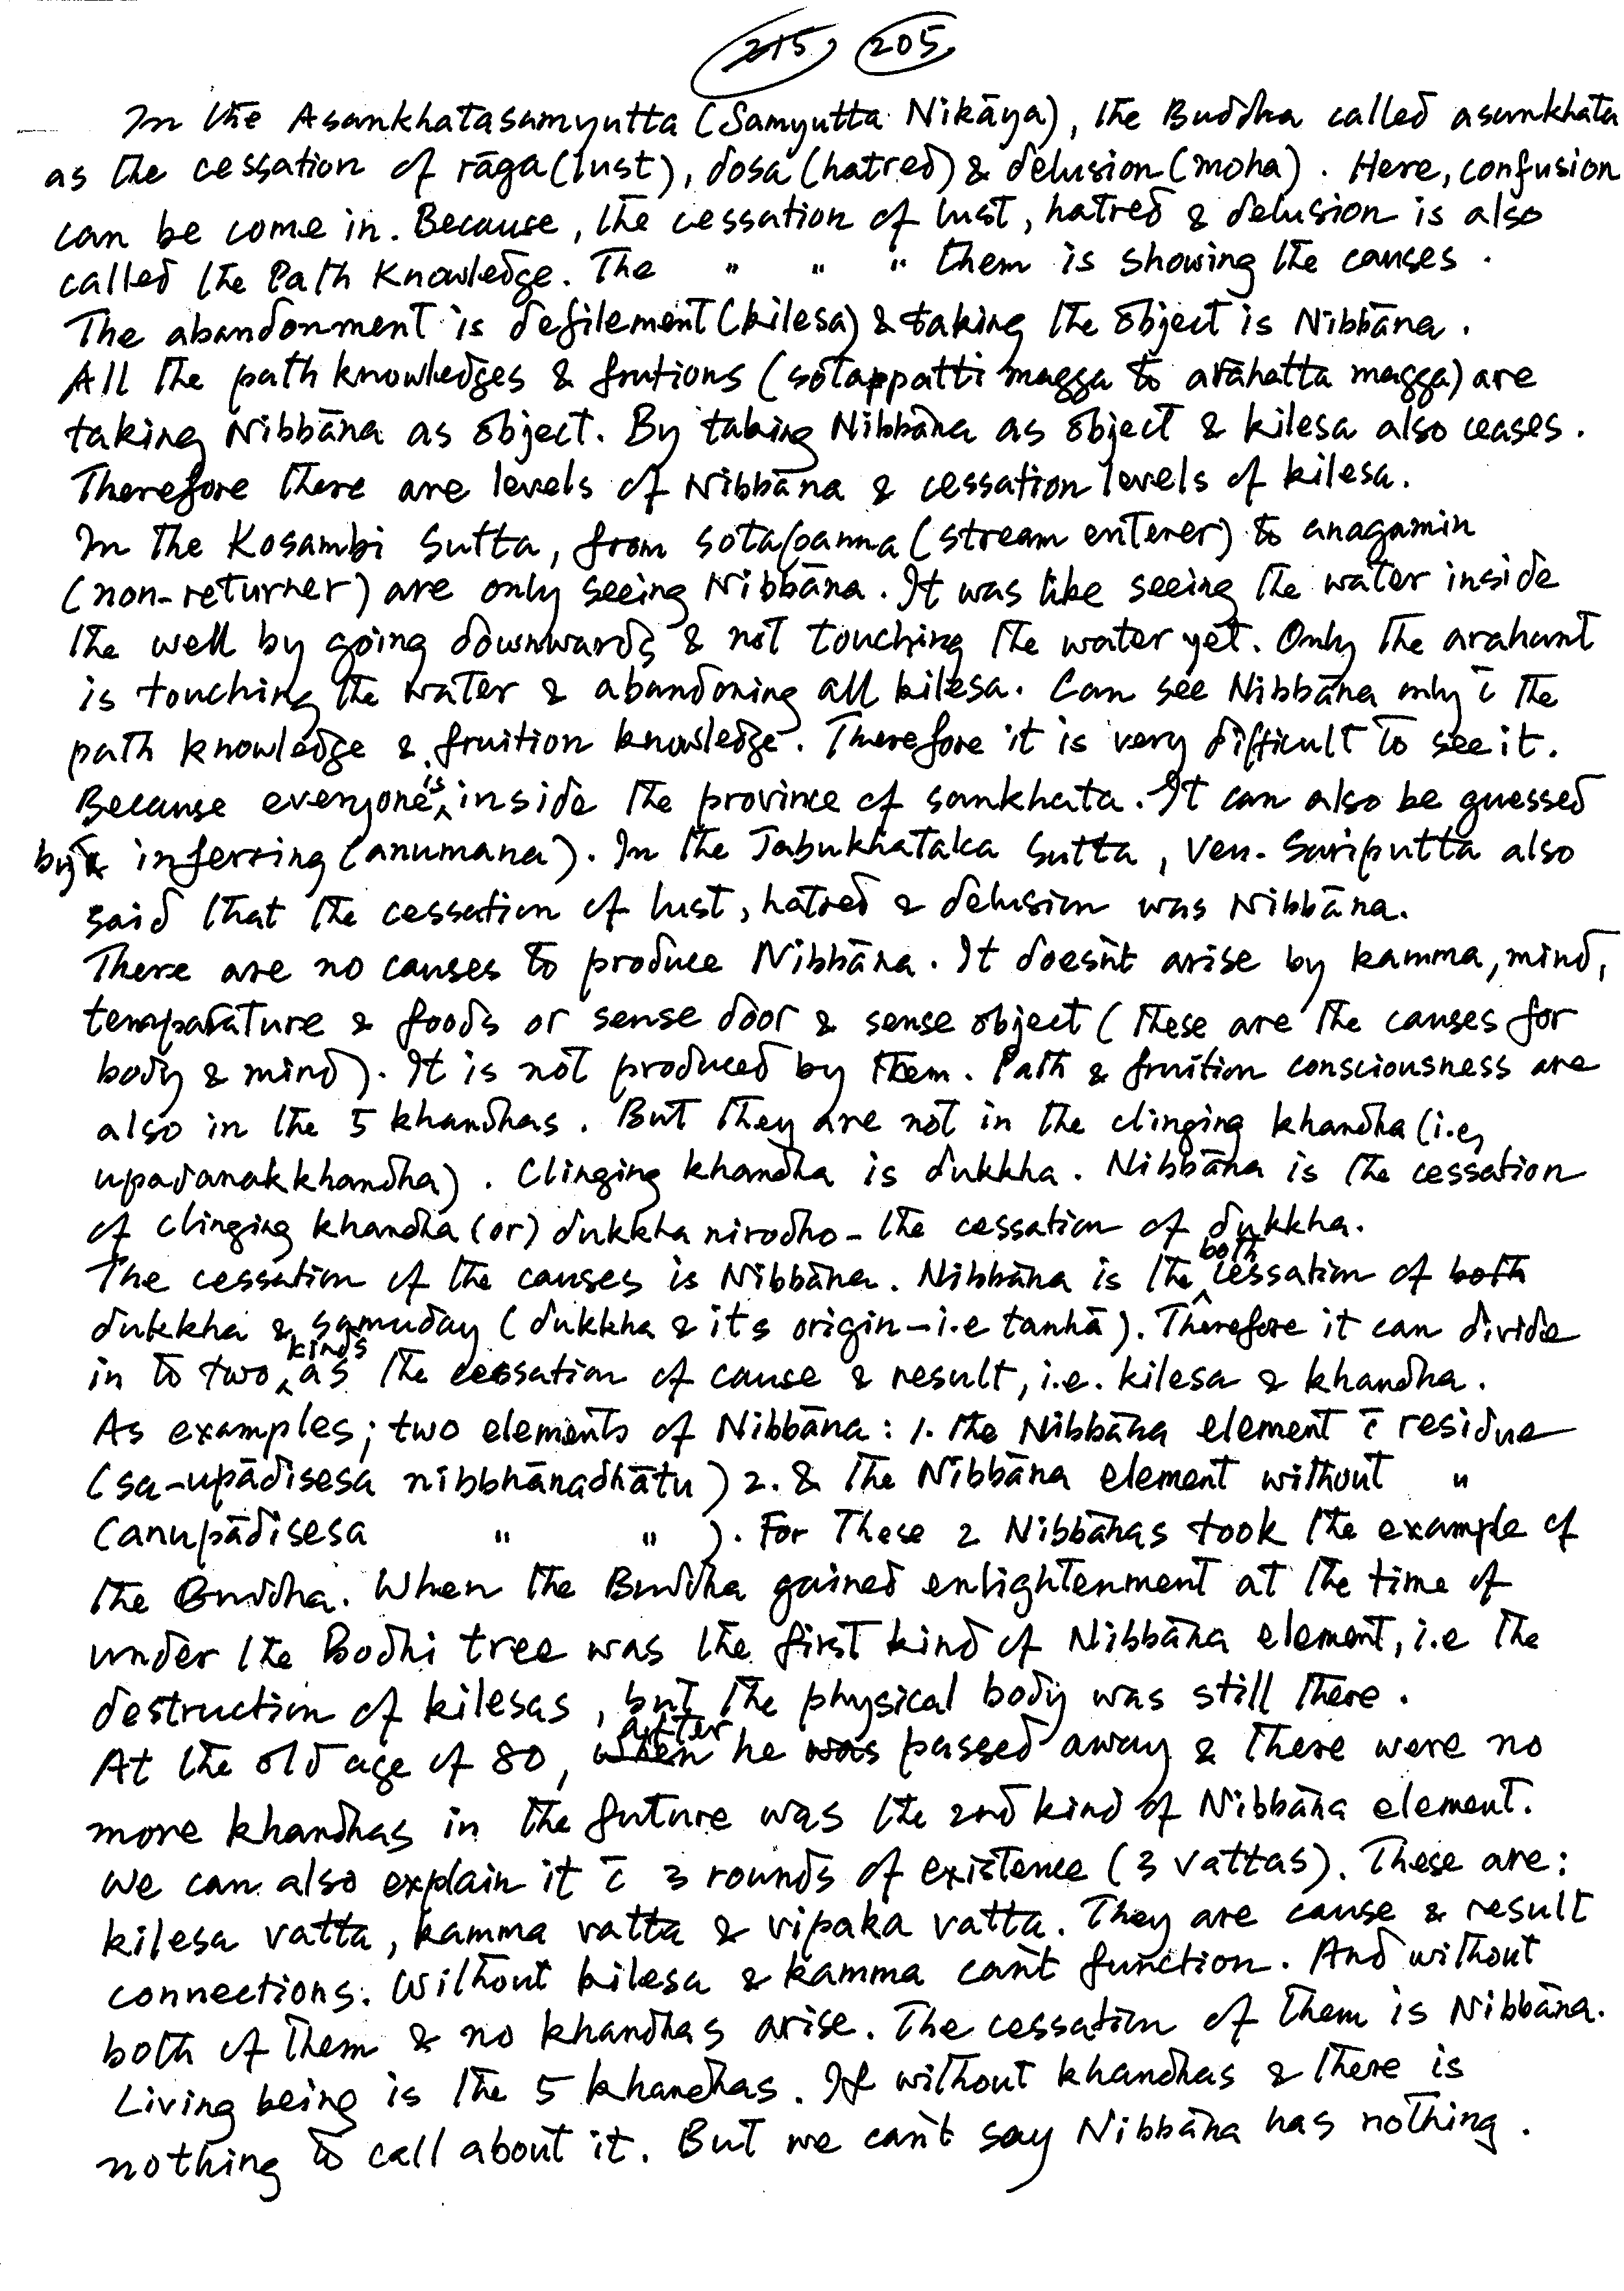 215, 205,
In the Asankhatasamyutta (Samyutta Nikāya), the Buddha called asankhata
as the cessation of rāga (lust), dosa (hatred) & delusion (moha). Here, confusion
can be come in. Because, the cessation of lust, hatred & delusion is also
called the Path Knowledge. The " " " them is showing the causes.
The abandonment is defilement (kilesa) & taking the object is Nibbāna.
All the path knowledges & frutions (sotappatti magga to arāhatta magga) are
taking Nibbāna as object. By taking Nibbāna as object & kilesa also ceases.
Therefore there are levels of Nibbāna & cessation levels of kilesa.
In the Kosambi Sutta, from sotapanna (stream enterer) to anagamin
(non-returner) are only seeing Nibbāna. It was like seeing the water inside
the well by going downwards & not touching the water yet. Only the arahant
is touching the water & abandoning all kilesa. Can see Nibbāna only c̄ the
path knowledge & fruition knowledge. Therefore it is very difficult to see it.
Because everyone is inside the province of sankhata. It can also be guessed
by inferring (anumana). In the Jabukhataka Sutta, Ven. Sariputta also
said that the cessation of lust, hatred & delusion was Nibbāna.
There are no causes to produce Nibbāna. It doesn't arise by kamma, mind,
temparature & foods or sense door & sense object (these are the causes for
body & mind). It is not produced by them. Path & fruition consciousness are
also in the 5 khandhas. But they are not in the clinging khandha (i.e,
upadanakkhandha). Clinging khandha is dukkha. Nibbāna is the cessation
of clinging khandha (or) dukkha nirodho - the cessation of dukkha.
The cessation of the causes is Nibbāna. Nibbāna is the both cessation of both
dukkha & samuday (dukkha & its origin - i.e tanhā). Therefore it can divide
in to two kinds as the cessation of cause & result, i.e. kilesa & khandha.
As examples; two elements of Nibbāna: 1. the Nibbāna element c̄ residue
(sa-upādisesa nibbhānadhātu) 2. & the Nibbāna element without "
(anupādisesa " " ). For these 2 Nibbānas took the example of
the Buddha. When the Buddha gained enlightenment at the time of
under the Bodhi tree was the first kind of Nibbāna element, i.e the
destruction of kilesas, but the physical body was still there.
At the old age of 80, when after he was passed away & there were no
more khandhas in the future was the 2nd kind of Nibbāna element.
We can also explain it c̄ 3 rounds of existence (3 vattas). These are:
kilesa vatta, kamma vatta & vipaka vatta. They are cause & result
connections. Without kilesa & kamma can't function. And without
both of them & no khandhas arise. The cessation of them is Nibbāna.
Living being is the 5 khandhas. If without khandhas & there is
nothing to call about it. But we can't say Nibbāna has nothing.